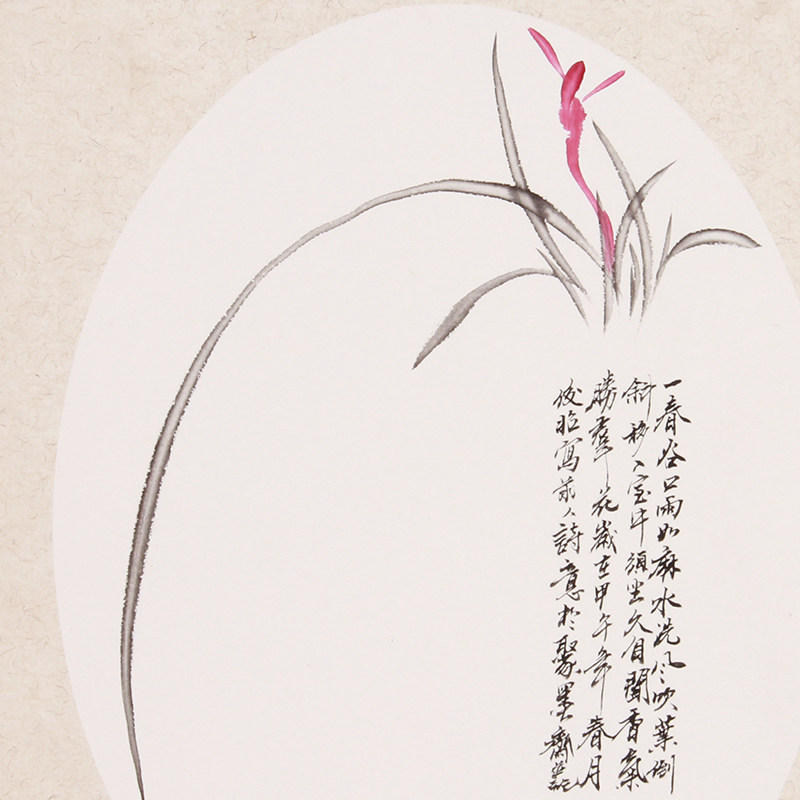 一春谷口雨如麻水洗风吹葉倒
斜移入室中須坐久自聞香氣
勝羣花歲在甲午年春月
俊昭寫前人詩意於聚墨齋